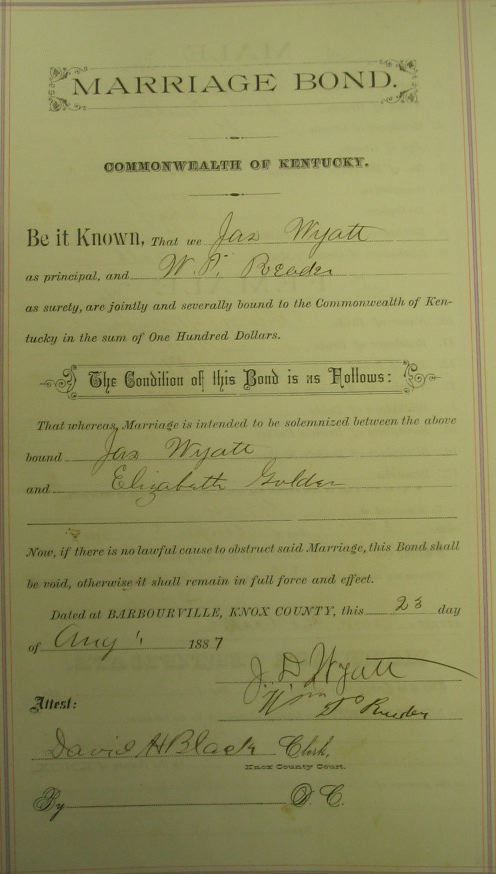 MARRIAGE BOND.
COMMONWEALTH OF KENTUCKY.
Be it Known, That we Jas Wyatt
as principal, and W. P. Reader
as surety, are jointly and severally bound to the Commonwealth of Ken-
tucky in the sum of One Hundred Dollars.
The Condition of this Bond is as Follows:
That whereas, Marriage is intended to be solemnized between the above
bound Jas Wyatt
and Elizabeth Golden
Now, if there is no lawful cause to obstruct said Marriage, this Bond shall
be void, otherwise it shall remain in full force and effect.
Dated at BARBOURVILLE, KNOX COUNTY, this 23 day
of Aug 1887
J. D. Wyatt
Attest:
Wm
David H Black Clerk,
Knox County Court.
By D. C.